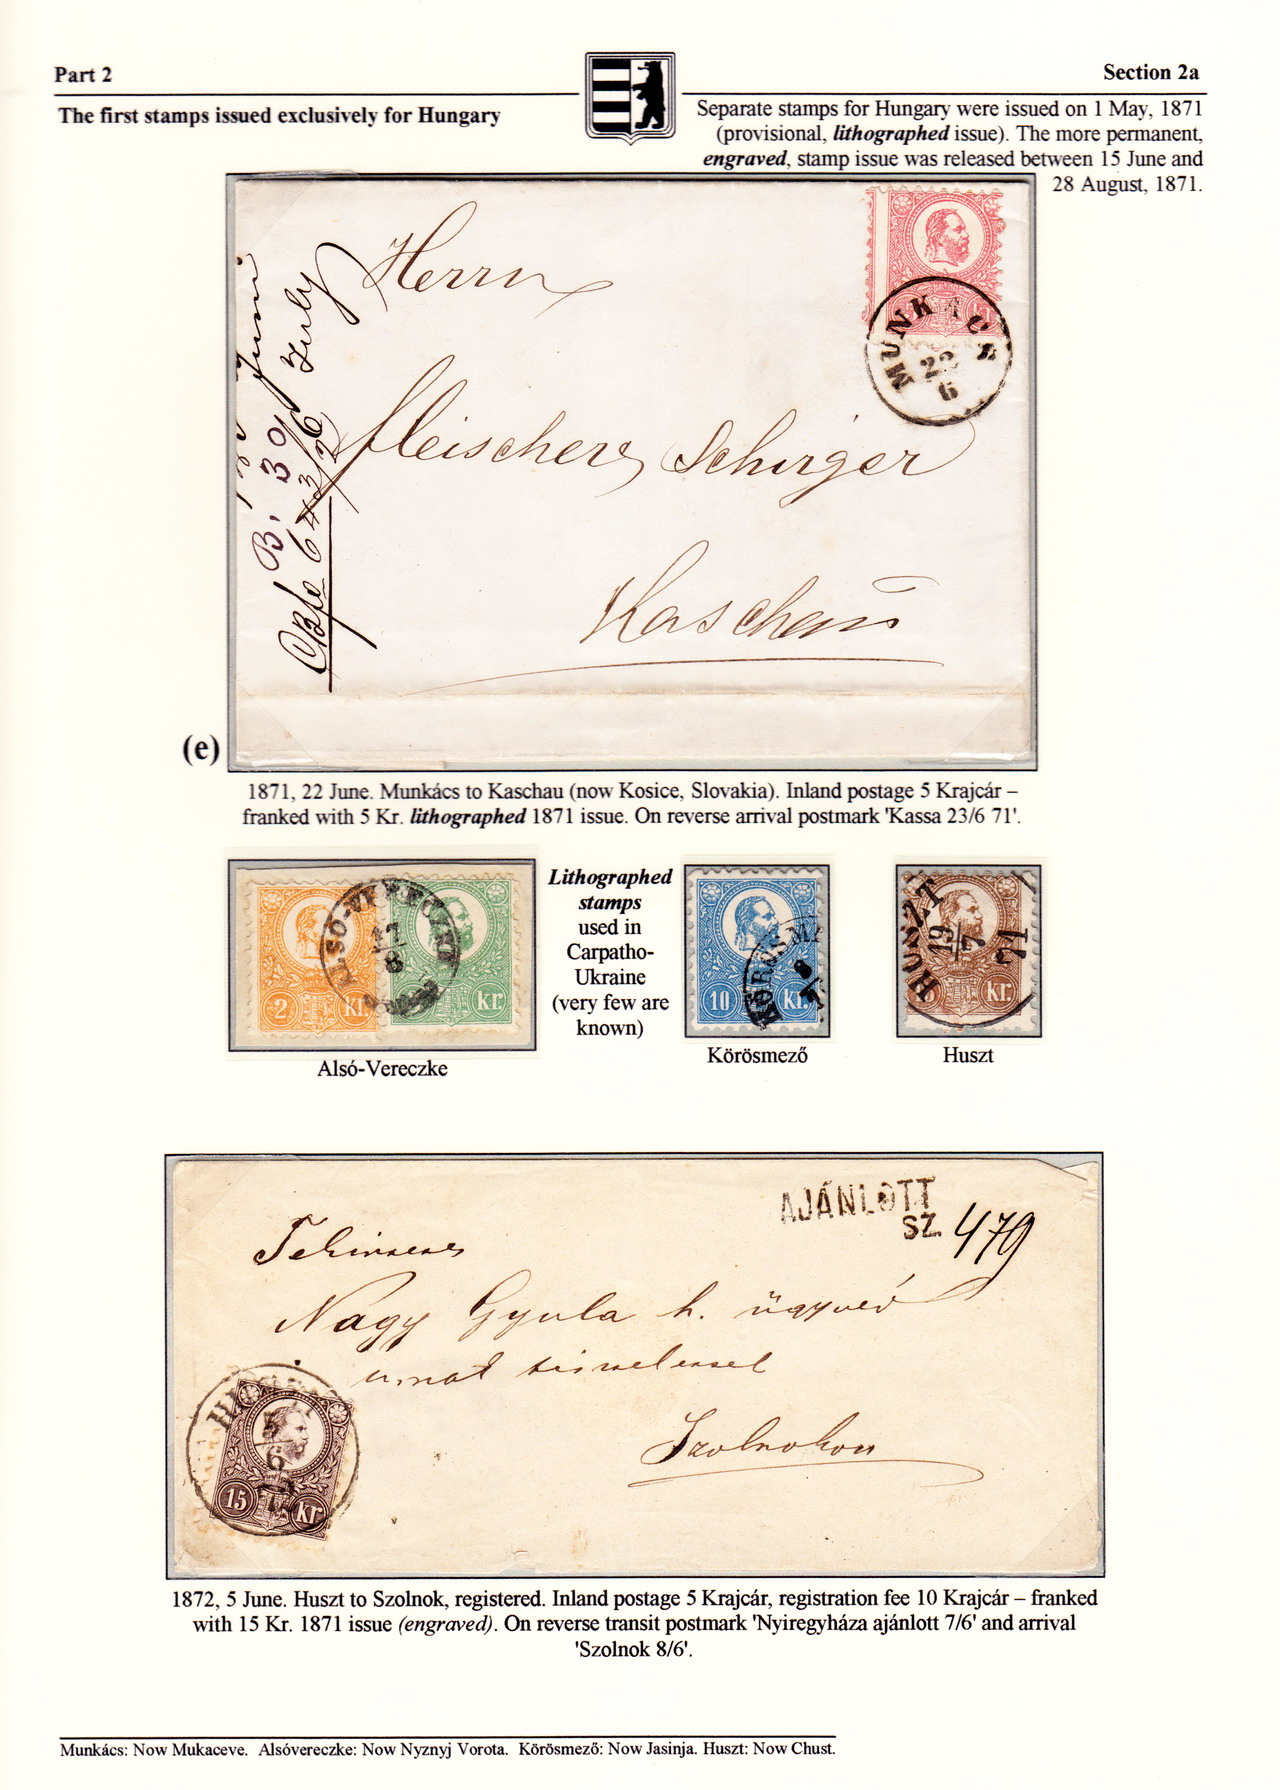 Part 2
Section 2a
The first stamps issued exclusively for Hungary
Separate stamps for Hungary were issued on 1 May, 1871
(provisional, lithographed issue). The more permanent,
engraved, stamp issue was released between 15 June and
28 August, 1871.
Herrn
Fleischer & Schirger
Kaschau
B. 30
July
MUNKACS
22
6
(e)
1871, 22 June. Munkács to Kaschau (now Kosice, Slovakia). Inland postage 5 Krajcár –
franked with 5 Kr. lithographed 1871 issue. On reverse arrival postmark 'Kassa 23/6 71'.
ALSO-VERECZKE
17
8
2 kr.
kr.
Alsó-Vereczke
Lithographed
stamps
used in
Carpatho-
Ukraine
(very few are
known)
KÖRÖSME
8
10 kr.
Körösmező
HUSZT
19
7
71
kr.
Huszt
AJÁNLOTT
SZ. 479
Nagy Gyula h. ügyvéd
Szolnokon
6
15 kr
1872, 5 June. Huszt to Szolnok, registered. Inland postage 5 Krajcár, registration fee 10 Krajcár – franked
with 15 Kr. 1871 issue (engraved). On reverse transit postmark 'Nyiregyháza ajánlott 7/6' and arrival
'Szolnok 8/6'.
Munkács: Now Mukaceve. Alsóvereczke: Now Nyznyj Vorota. Körösmező: Now Jasinja. Huszt: Now Chust.